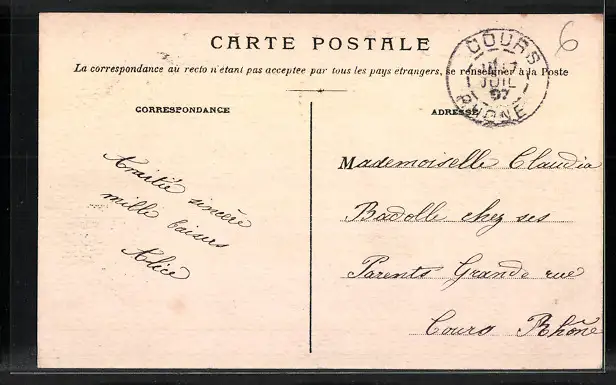 CARTE POSTALE
La correspondance au recto n'étant pas acceptée par tous les pays étrangers, se renseigner à la Poste
CORRESPONDANCE
ADRESSE
COURS
JUIL
07
RHONE
6
Amitié sincère
mille baisers
Alice
Mademoiselle Claudia
Badolle chez ses
Parents Grande rue
Cours Rhône